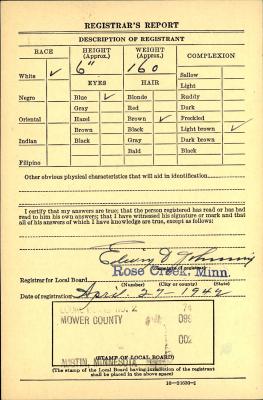 REGISTRAR'S REPORT
DESCRIPTION OF REGISTRANT
RACE
HEIGHT (Approx.)
WEIGHT (Approx.)
COMPLEXION
6" 160
White ✓
Sallow
EYES HAIR
Light
Negro
Blue ✓
Blonde
Ruddy
Gray
Red
Dark
Oriental
Hazel
Brown ✓
Freckled
Brown
Black
Light brown ✓
Indian
Black
Gray
Dark brown
Bald
Black
Filipino
Other obvious physical characteristics that will aid in identification
I certify that my answers are true; that the person registered has read or has had
read to him his own answers; that I have witnessed his signature or mark and that
all of his answers of which I have knowledge are true, except as follows:
Rose Creek, Minn.
Registrar for Local Board
(Number) (City or county) (State)
Date of registration April 27-1942
NO. 2
MOWER COUNTY
AUSTIN, MINNESOTA
(STAMP OF LOCAL BOARD)
(The stamp of the Local Board having jurisdiction of the registrant
shall be placed in the above space)